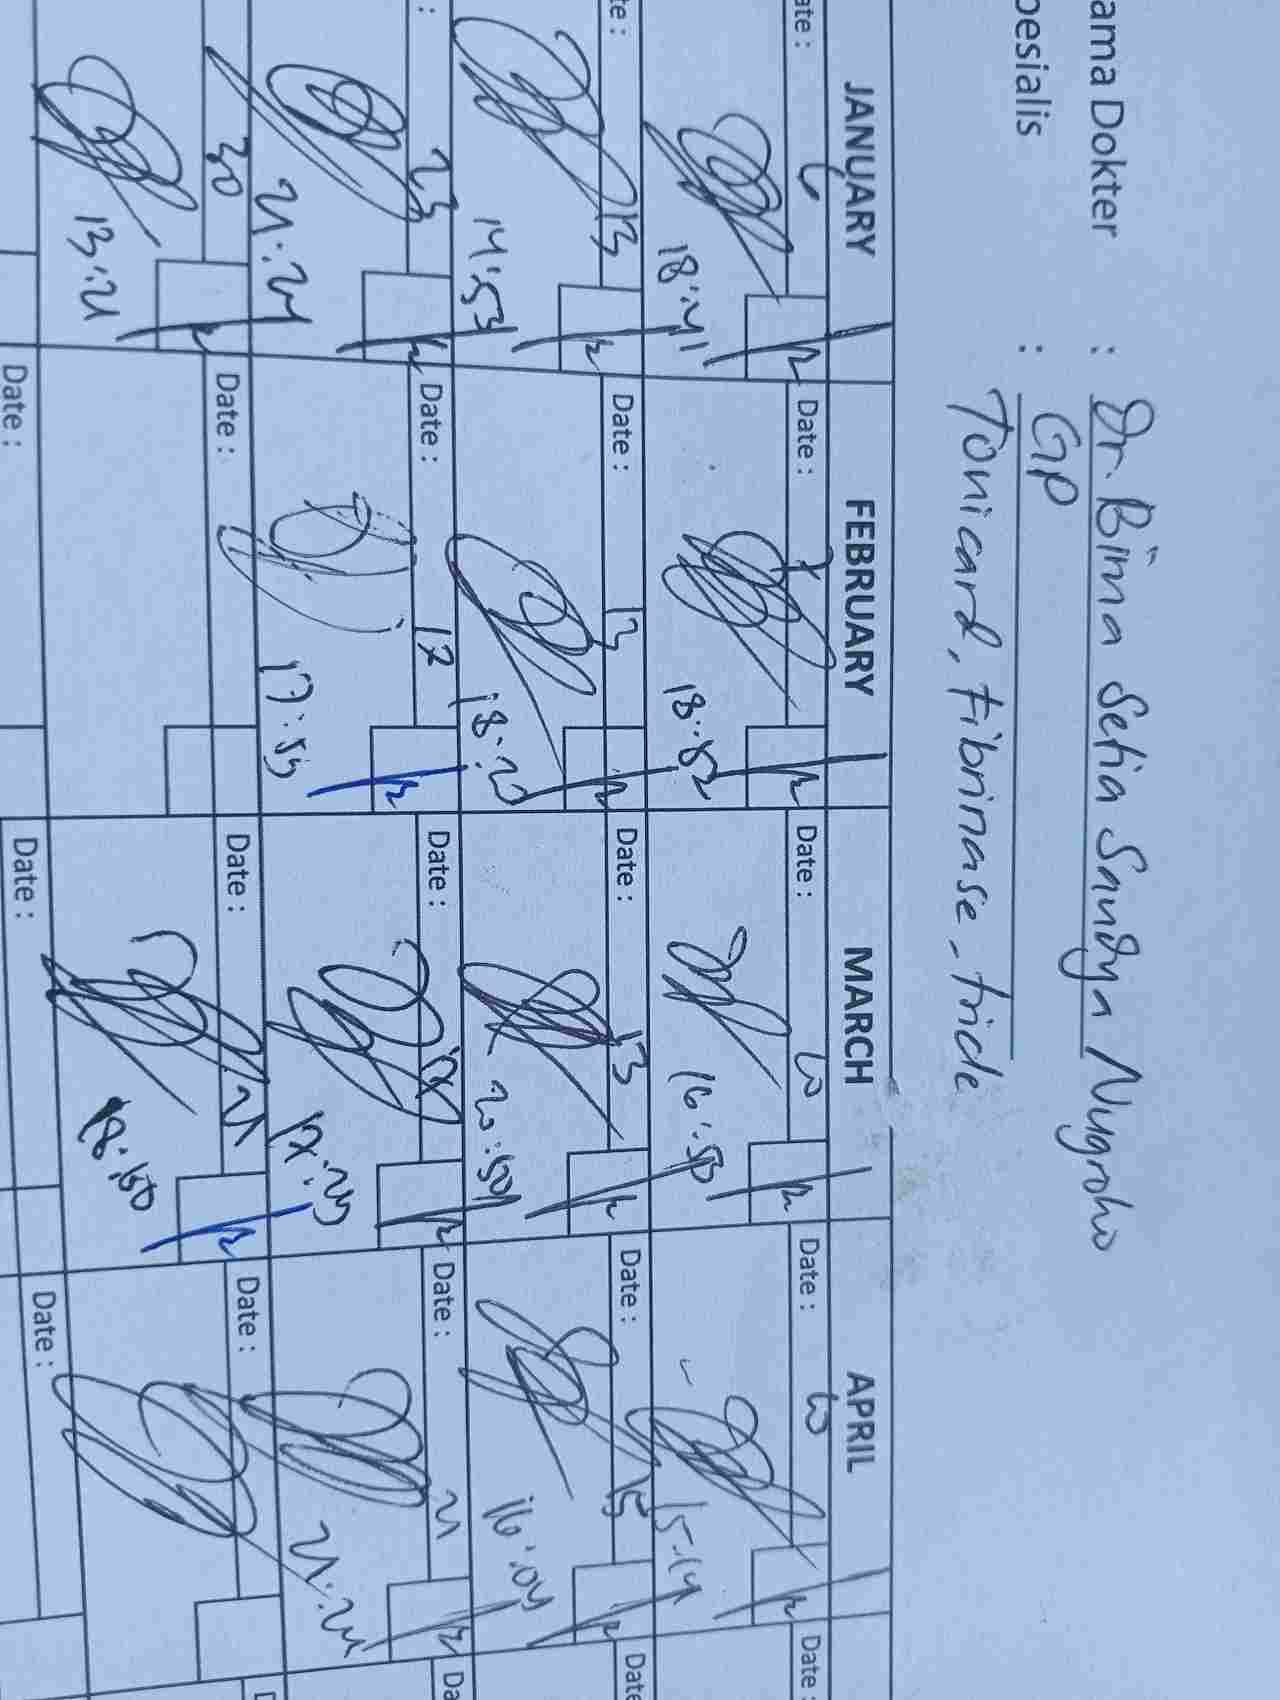 ama Dokter : Dr. Bima Setia Sandya Nugroho
pesialis : GP
Tonicard, Fibrinase, tride
JANUARY FEBRUARY MARCH APRIL
ate : 6 Date : 7 Date : 3 Date : 3 Date :
18:41 16:50 15.14
te : 13 Date : 13 Date : 13 Date : 15 Date
14:53 18:20 20:50 16:04
: 23 Date : 17 Date : 17 Date : 21 Da
21:24 17:55 17:25 21:24
30 Date : Date : 21 Date :
13:21 18:50
Date : Date : Date :